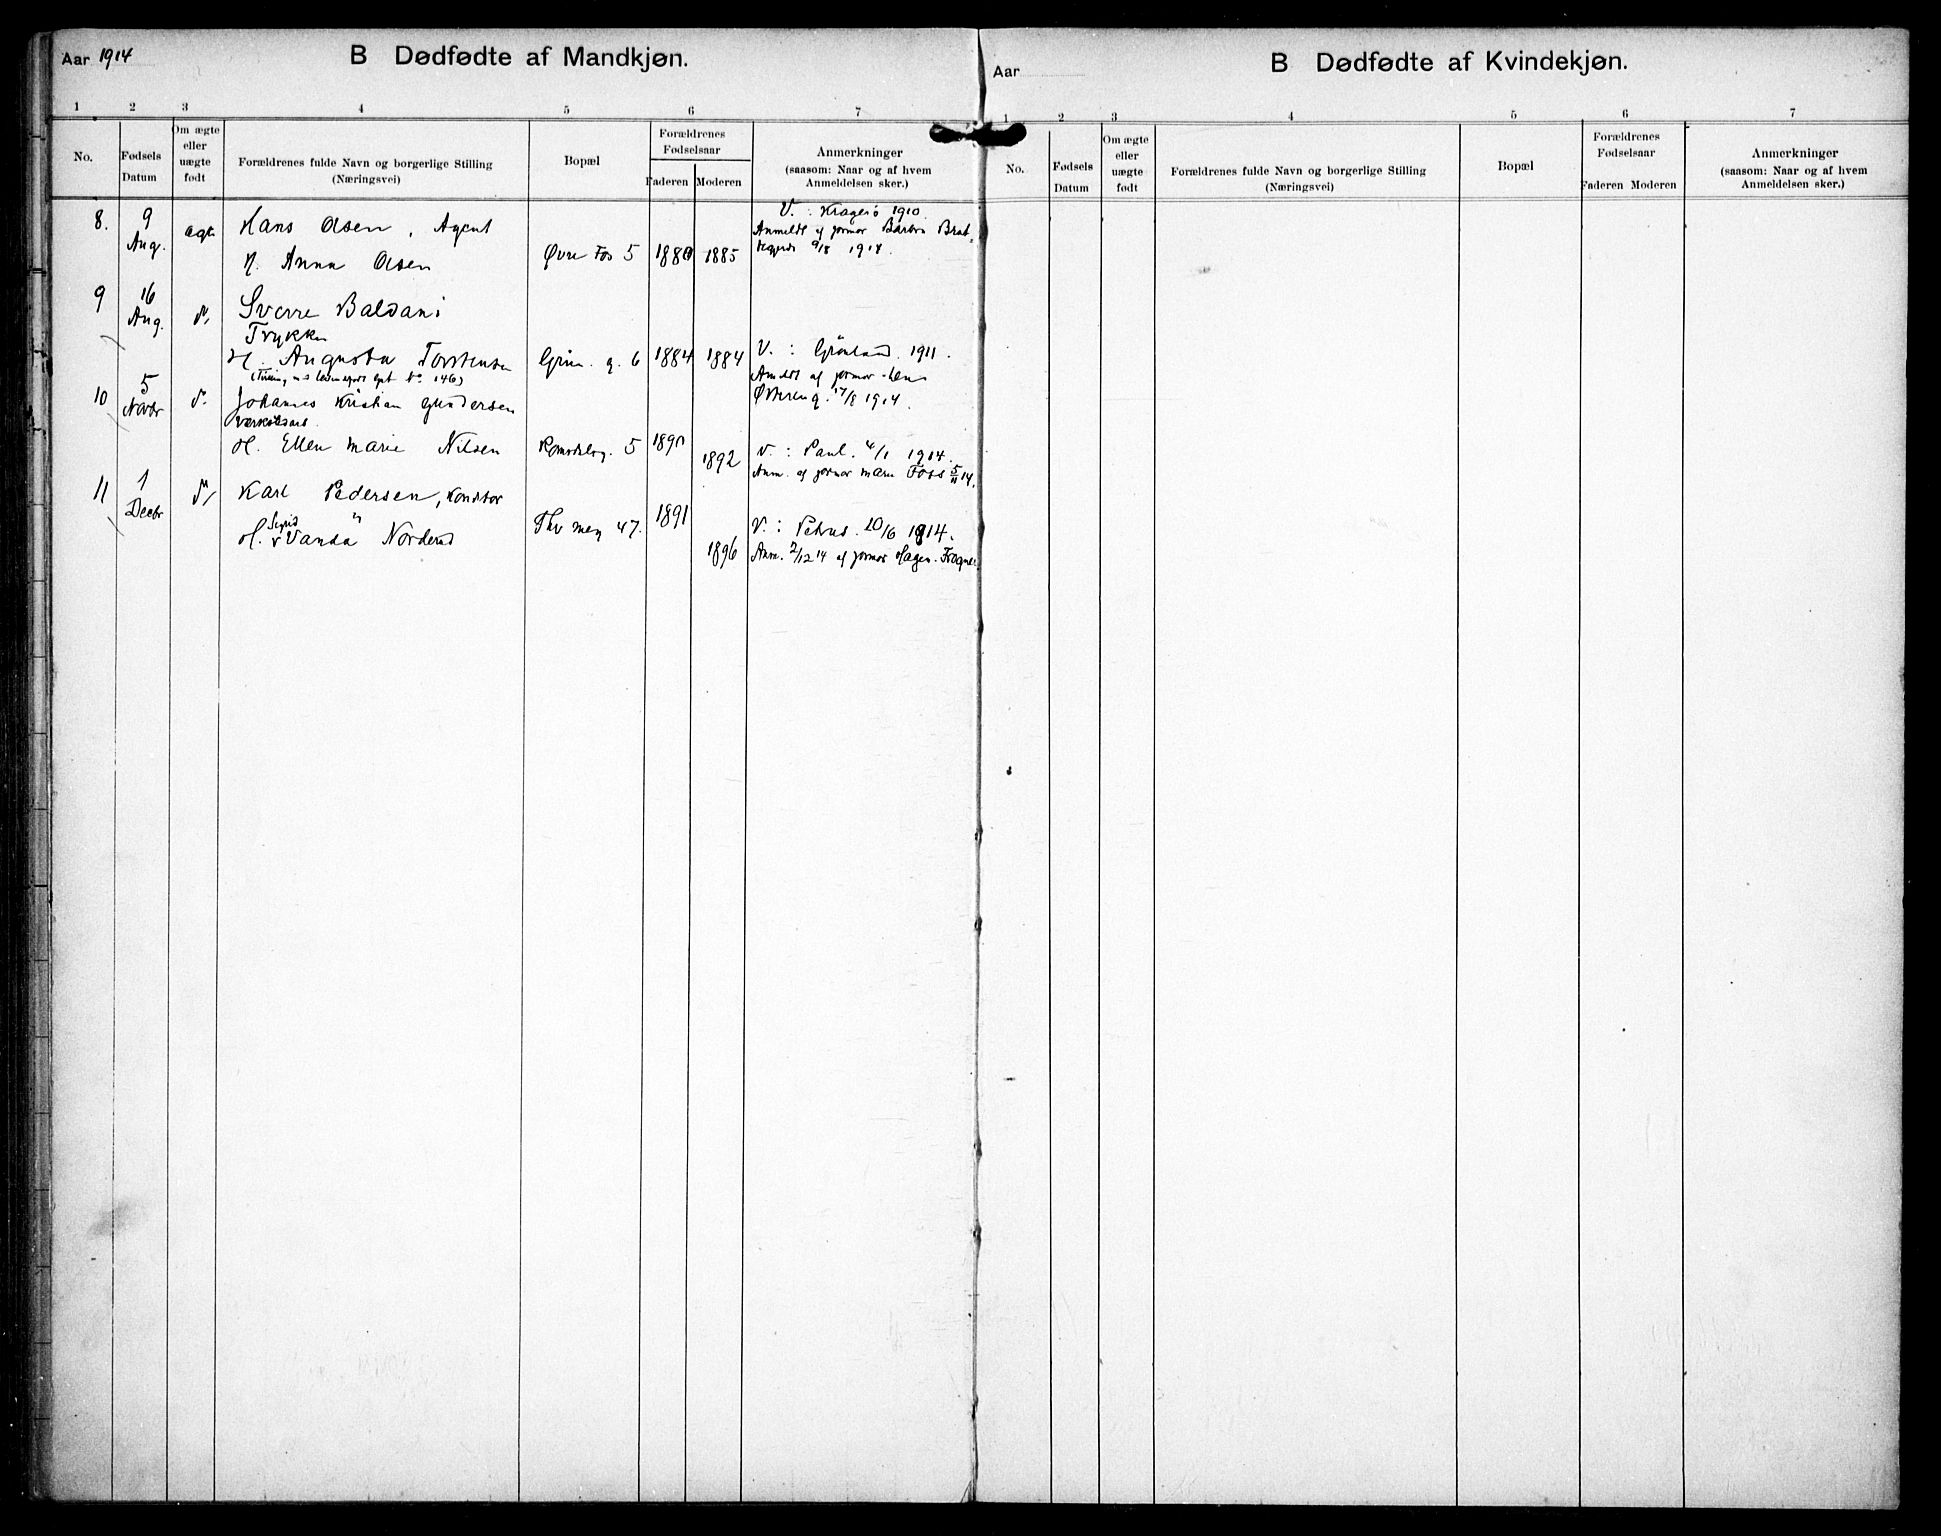 Aar 1914
B Dødfødte af Mandkjøn.
1 2 3 4 5 6 7
No.
Fødsels Datum
Om ægte eller uægte født
Forældrenes fulde Navn og borgerlige Stilling
(Næringsvei)
Bopæl
Forældrenes Fødselsaar
Faderen Moderen
Anmerkninger
(saasom: Naar og af hvem
Anmeldelsen sker.)
8. 9 Aug. ægte
Hans Olsen, Agent
H. Anna Olsen
Øvre Fos 5
1880 1885
V.: Kragerø 1910.
Anmeldt af jormor Barbro Brat-
9/8 1914.
9 16 Aug. d.
Sverre Baldani
Trykker
H. Augusta Torstensen
g. 6
1884 1884
V.: Grönland. 1911.
af jormor
17/8 1914.
10 5 Novbr d.
Johannes Kristian Gundersen
H. Ellen Marie Nilsen
Romsdalsg. 5
1890
1892
V.: Paul. 4/1 1914.
Anm. af jormor Marie Foss 5/11 14.
11 1 Decbr d.
Karl Pedersen, Konditor
H. Sigrid Vanda Norderud
Thv mey 47.
1891
1896
V.: Petrus. 20/6 1914.
Anm. 2/12 14 af jormor Hagen. Frogner
Aar
B Dødfødte af Kvindekjøn.
1 2 3 4 5 6 7
No.
Fødsels Datum
Om ægte eller uægte født
Forældrenes fulde Navn og borgerlige Stilling
(Næringsvei)
Bopæl
Forældrenes Fødselsaar
Faderen Moderen
Anmerkninger
(saasom: Naar og af hvem
Anmeldelsen sker.)